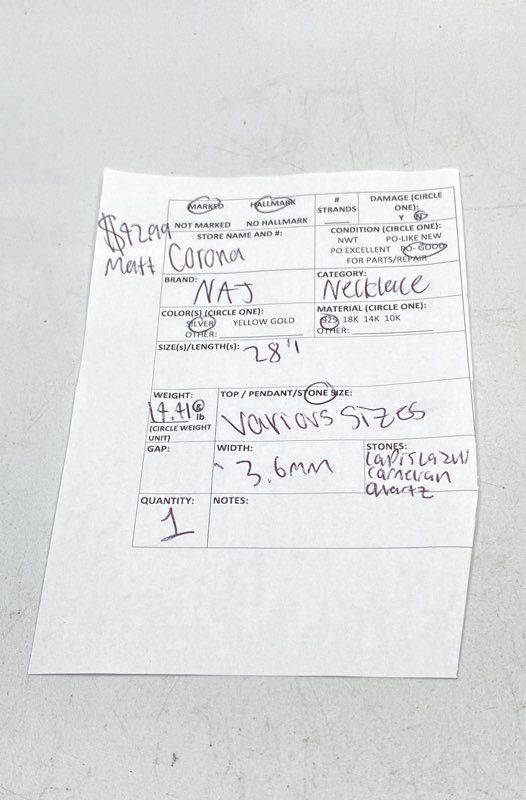 $42.99
Matt
MARKED HALLMARK
NOT MARKED NO HALLMARK
# STRANDS
DAMAGE (CIRCLE ONE):
Y N
STORE NAME AND #:
Corona
CONDITION (CIRCLE ONE):
NWT PO-LIKE NEW
PO EXCELLENT PO-GOOD
FOR PARTS/REPAIR
BRAND:
NAJ
CATEGORY:
Necklace
COLOR(S) (CIRCLE ONE):
SILVER YELLOW GOLD
OTHER:
MATERIAL (CIRCLE ONE):
925 18K 14K 10K
OTHER:
SIZE(S)/LENGTH(s):
28"
WEIGHT:
14.41 g
lb
(CIRCLE WEIGHT
UNIT)
TOP / PENDANT/STONE SIZE:
Various sizes
GAP:
WIDTH:
3.6mm
STONES:
Lapis Lazuli
quartz
QUANTITY:
1
NOTES: